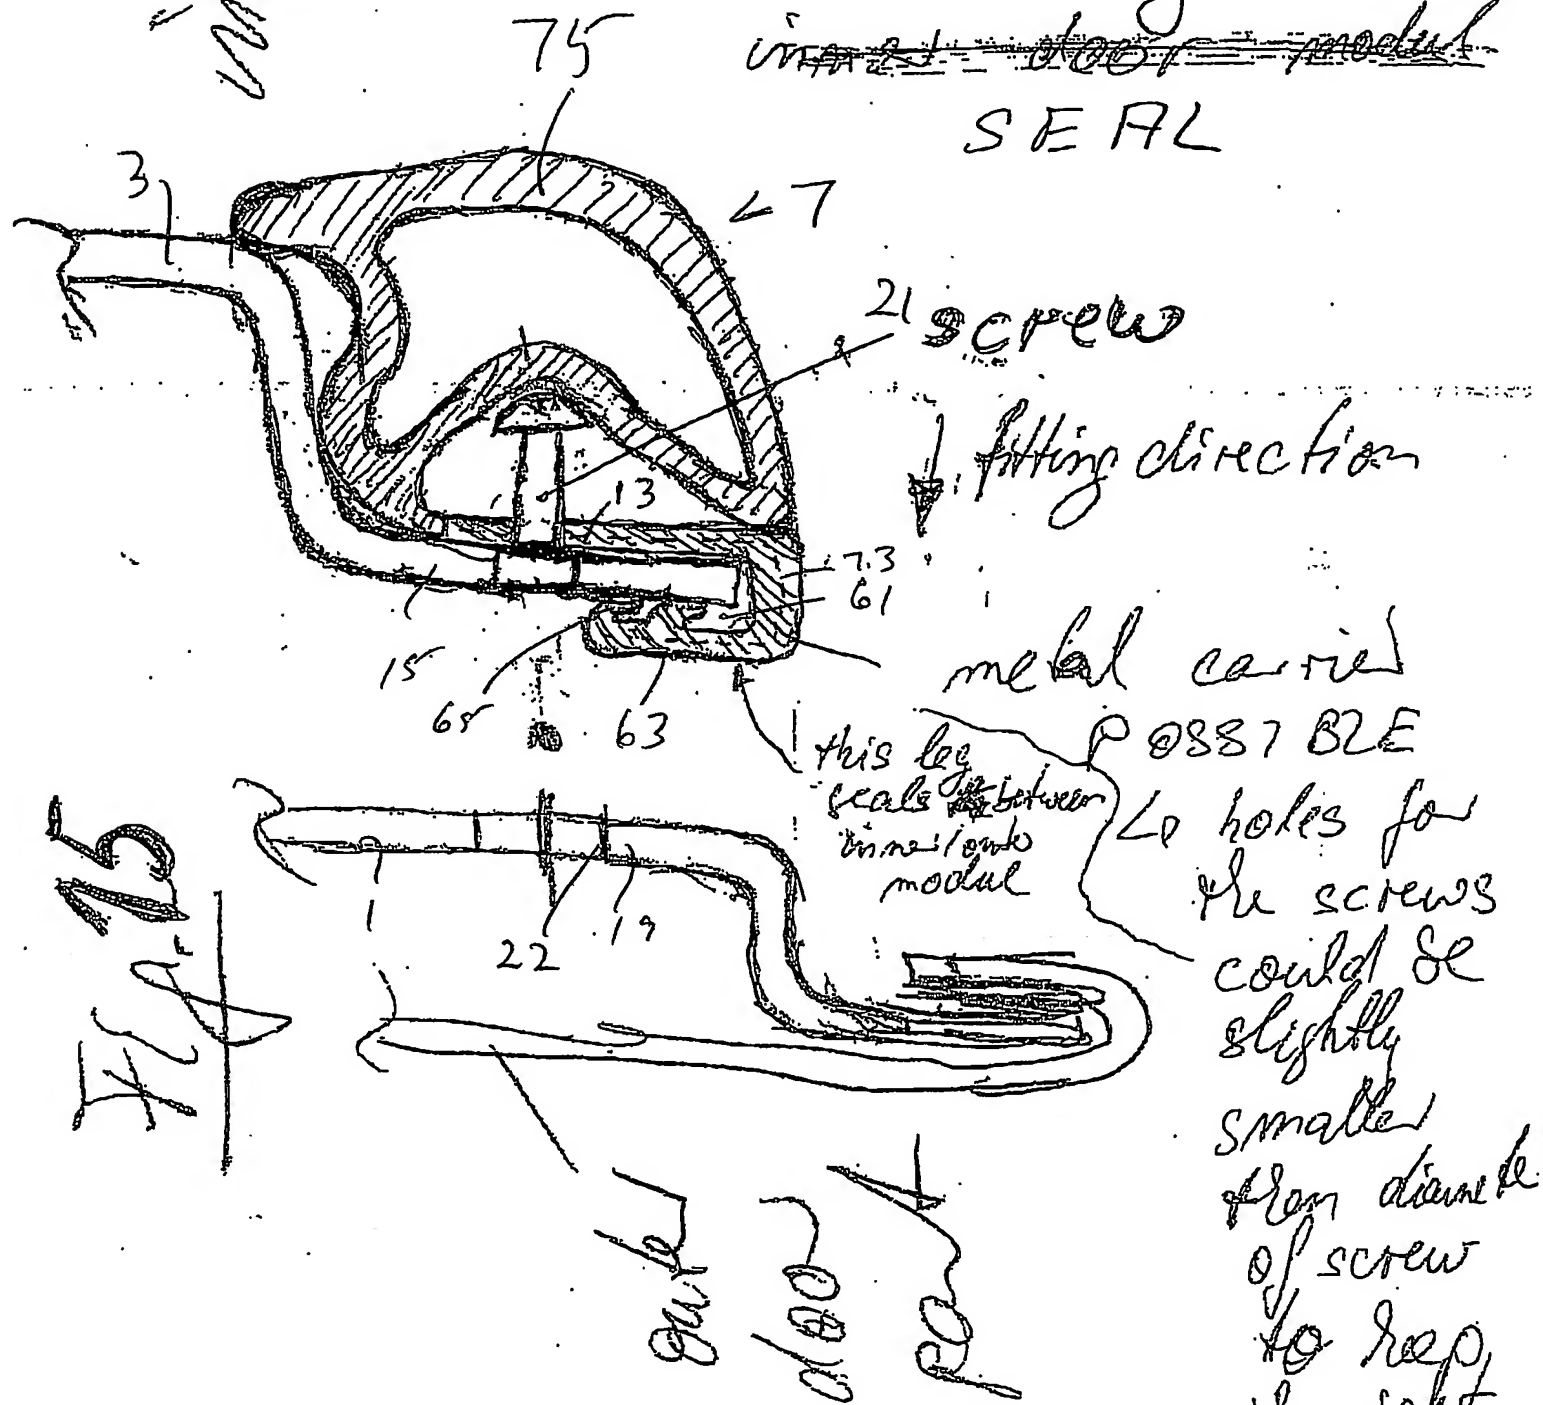 75
inner door modul
SEAL
3
7
21 screw
fitting direction
13
7.3
61
15
65
63
metal carrier
POSSIBLE
this leg
seals between
inner/outer
modul
holes for
the screws
could be
slightly
smaller
then diamete
of screw
to keep
1
22
19
Fig. 13
outer
door
part